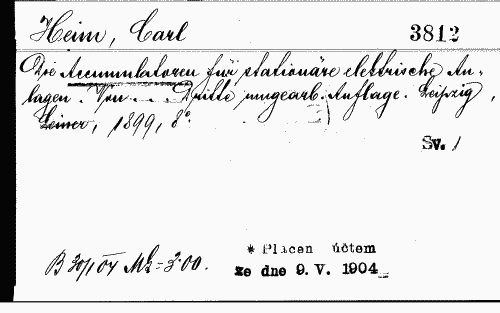 Heim, Carl 3812
Die Accumulatoren für stationäre elektrische An-
lagen. Von ... Dritte umgearb. Auflage. Leipzig,
Leiner, 1899, 8°.
Sv. 1
* Placen účtem
B 30/IV 04 Mk = 3.00. ze dne 9. V. 1904